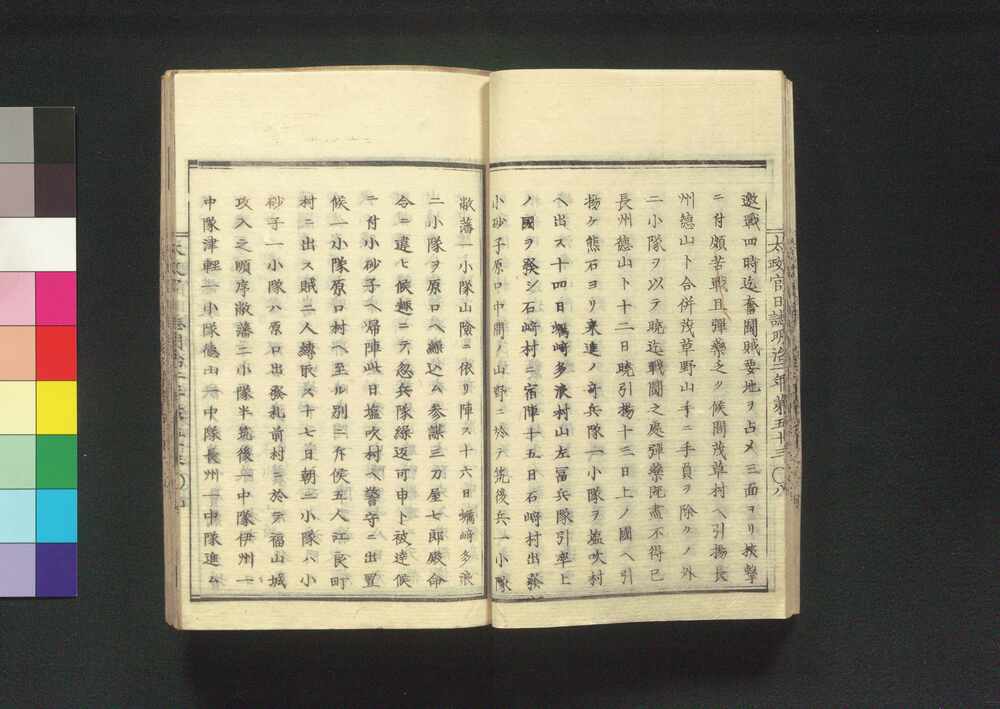 太政官日誌明治二年第五十三 〇八
邀戰四時迄奮鬪賊要地ヲ占メ三面ヨリ挾撃
ニ付頗苦戰且彈藥乏ク候間茂草村ヘ引揚長
州德山ト合併茂草野山手ニ手負ヲ除クノ外
二小隊ヲ以テ曉迄戰鬪之處彈藥既盡不得已
長州德山ト十二日曉引揚十三日上ノ國ヘ引
揚ケ熊石ヨリ來進ノ奇兵隊一小隊ヲ塩吹村
ヘ出ス十四日蠣﨑多浪村山左冨兵隊引率上
ノ國ヲ發シ石﨑村ニ宿陣十五日石﨑村出發
小砂子原口中間ノ山野ニ於テ筑後兵一小隊
敝藩一小隊山險ニ依リ陣ス十六日蠣﨑多浪
二小隊ヲ原口ヘ繰込ム參謀三刀屋七郎殿命
令ニ違ヒ候趣ニテ忽兵隊繰返可申ト被達候
ニ付小砂子ヘ歸陣此日塩吹村ヘ警守ニ出置
候一小隊原口村ヘ至ル別ニ斥候五人江良町
村ニ出ス賊二人縛取ス十七日朝二小隊ハ小
砂子一小隊ハ原口出發札前村ニ於テ福山城
攻入之順序敝藩二小隊半筑後一中隊伊州一
中隊津輕一小隊德山一中隊長州一中隊進ム